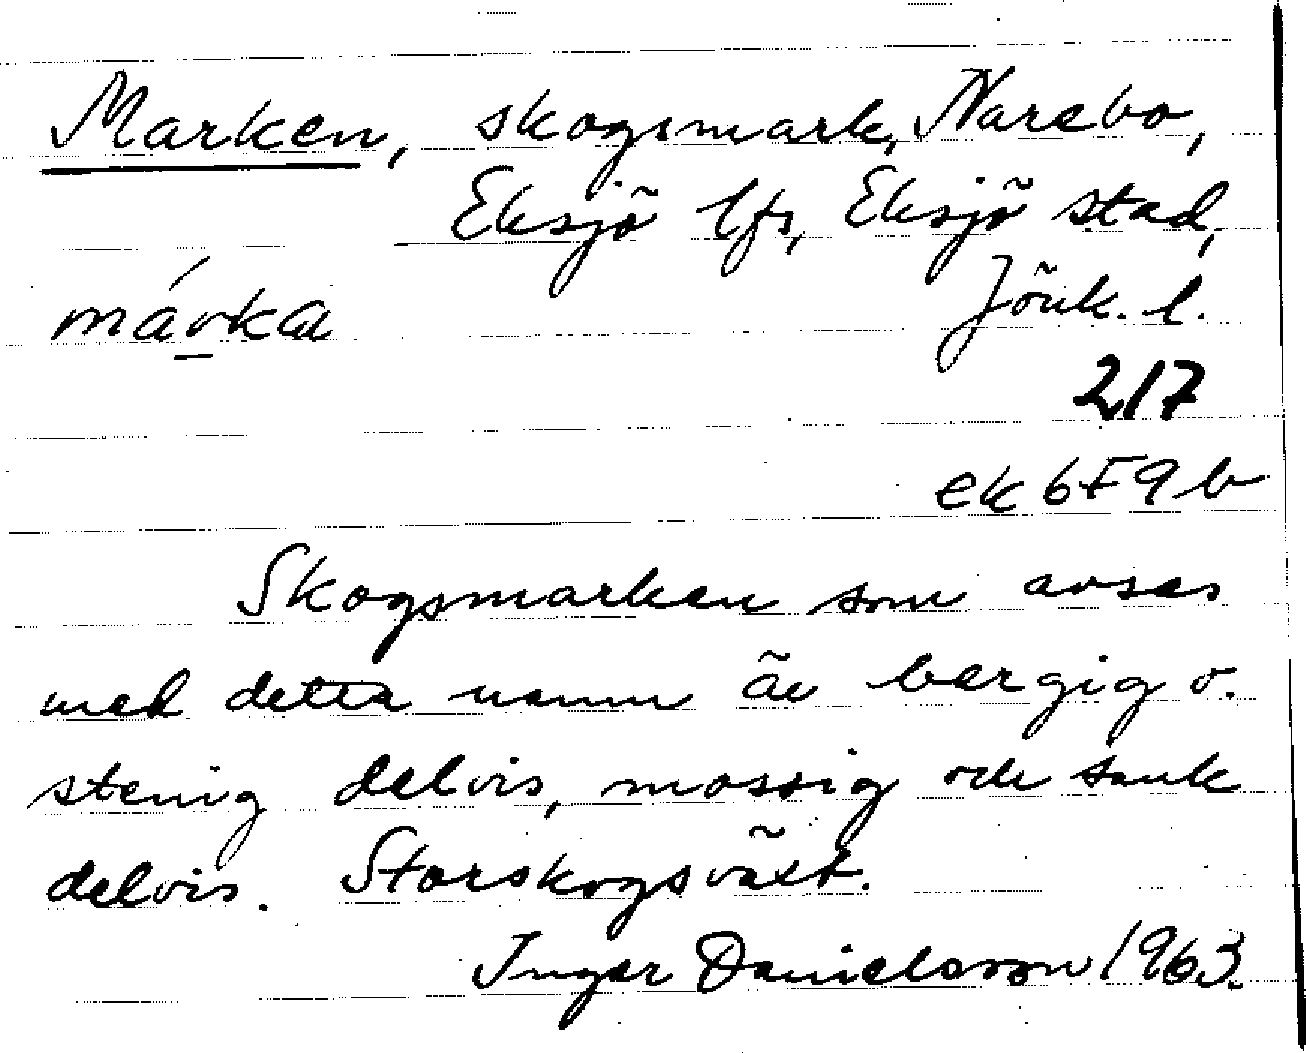 Marken, skogsmark, Narebo,
Eksjö lfs, Eksjö stad,
márka Jönk. l.
217
ek 6F9b
Skogsmarken som avses
med detta namn är bergig o.
stenig delvis, mossig och sank
delvis. Storskogsväxt.
Inger Danielsson 1963.